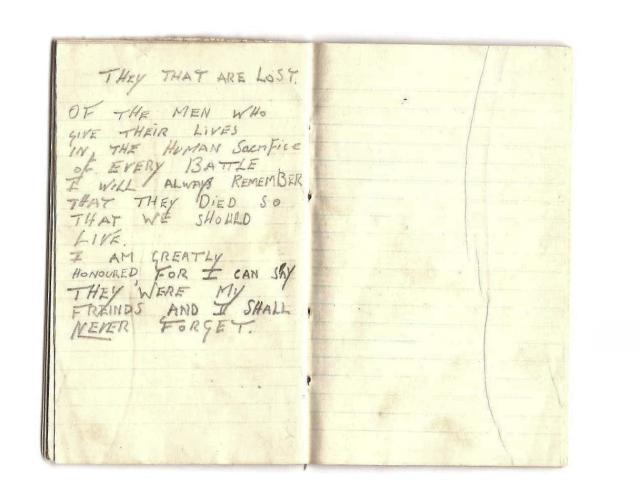 THEY THAT ARE LOST.
OF THE MEN WHO
GIVE THEIR LIVES
IN THE HUMAN SACRIFICE
OF EVERY BATTLE
I WILL ALWAYS REMEMBER
THAT THEY DIED SO
THAT WE SHOULD
LIVE.
I AM GREATLY
HONOURED, FOR I CAN SAY
THEY WERE MY
FREINDS AND I SHALL
NEVER FORGET.